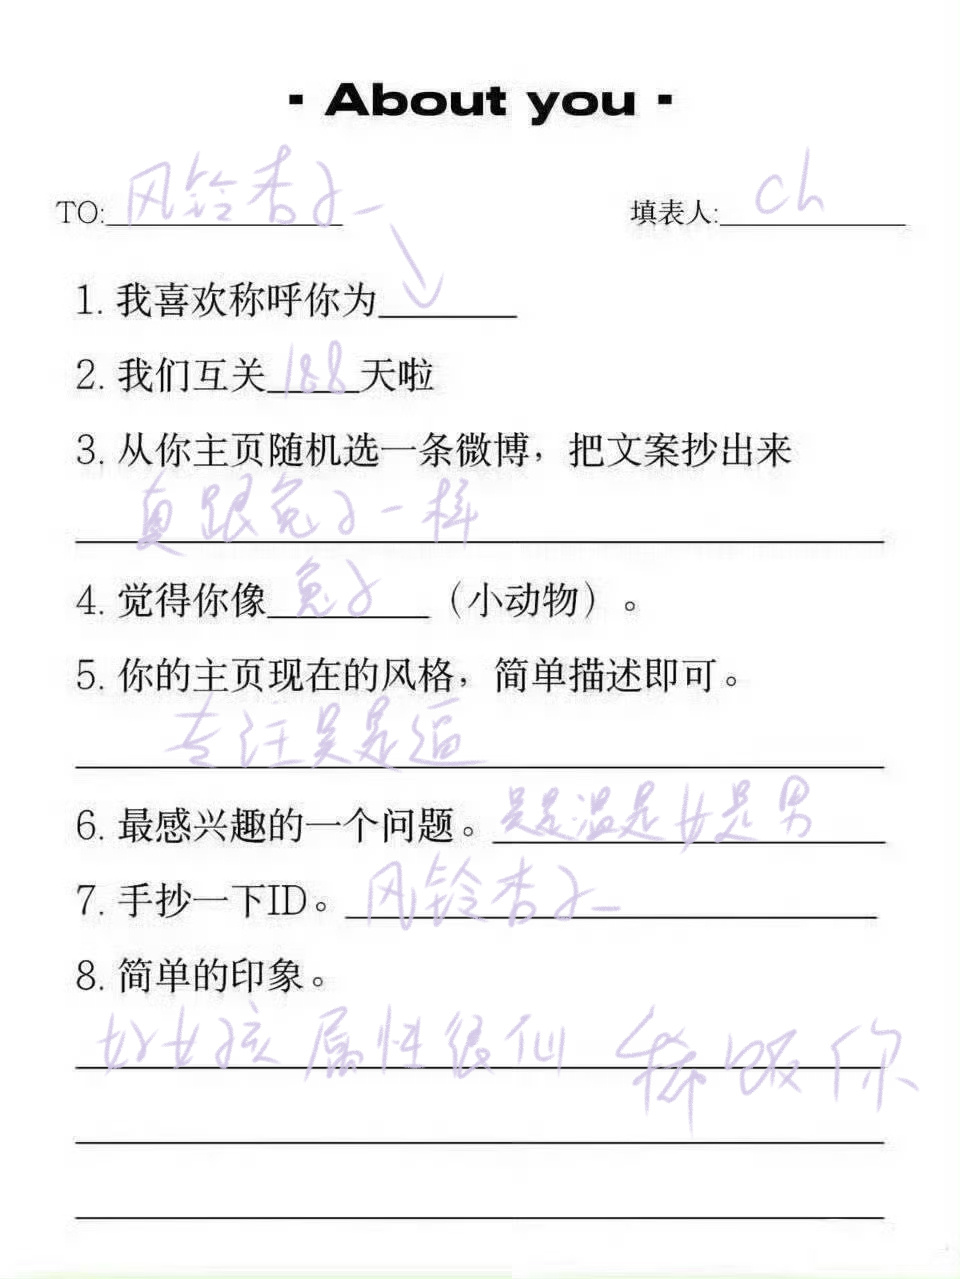 · About you ·
TO: 风铃杏子_ 填表人: ch
1. 我喜欢称呼你为
2. 我们互关188天啦
3. 从你主页随机选一条微博，把文案抄出来
真跟兔子一样
4. 觉得你像兔子（小动物）。
5. 你的主页现在的风格，简单描述即可。
专注吴是逼
6. 最感兴趣的一个问题。是温是女是男
7. 手抄一下ID。风铃杏子_
8. 简单的印象。
好女孩 属性很仙 捧饭你